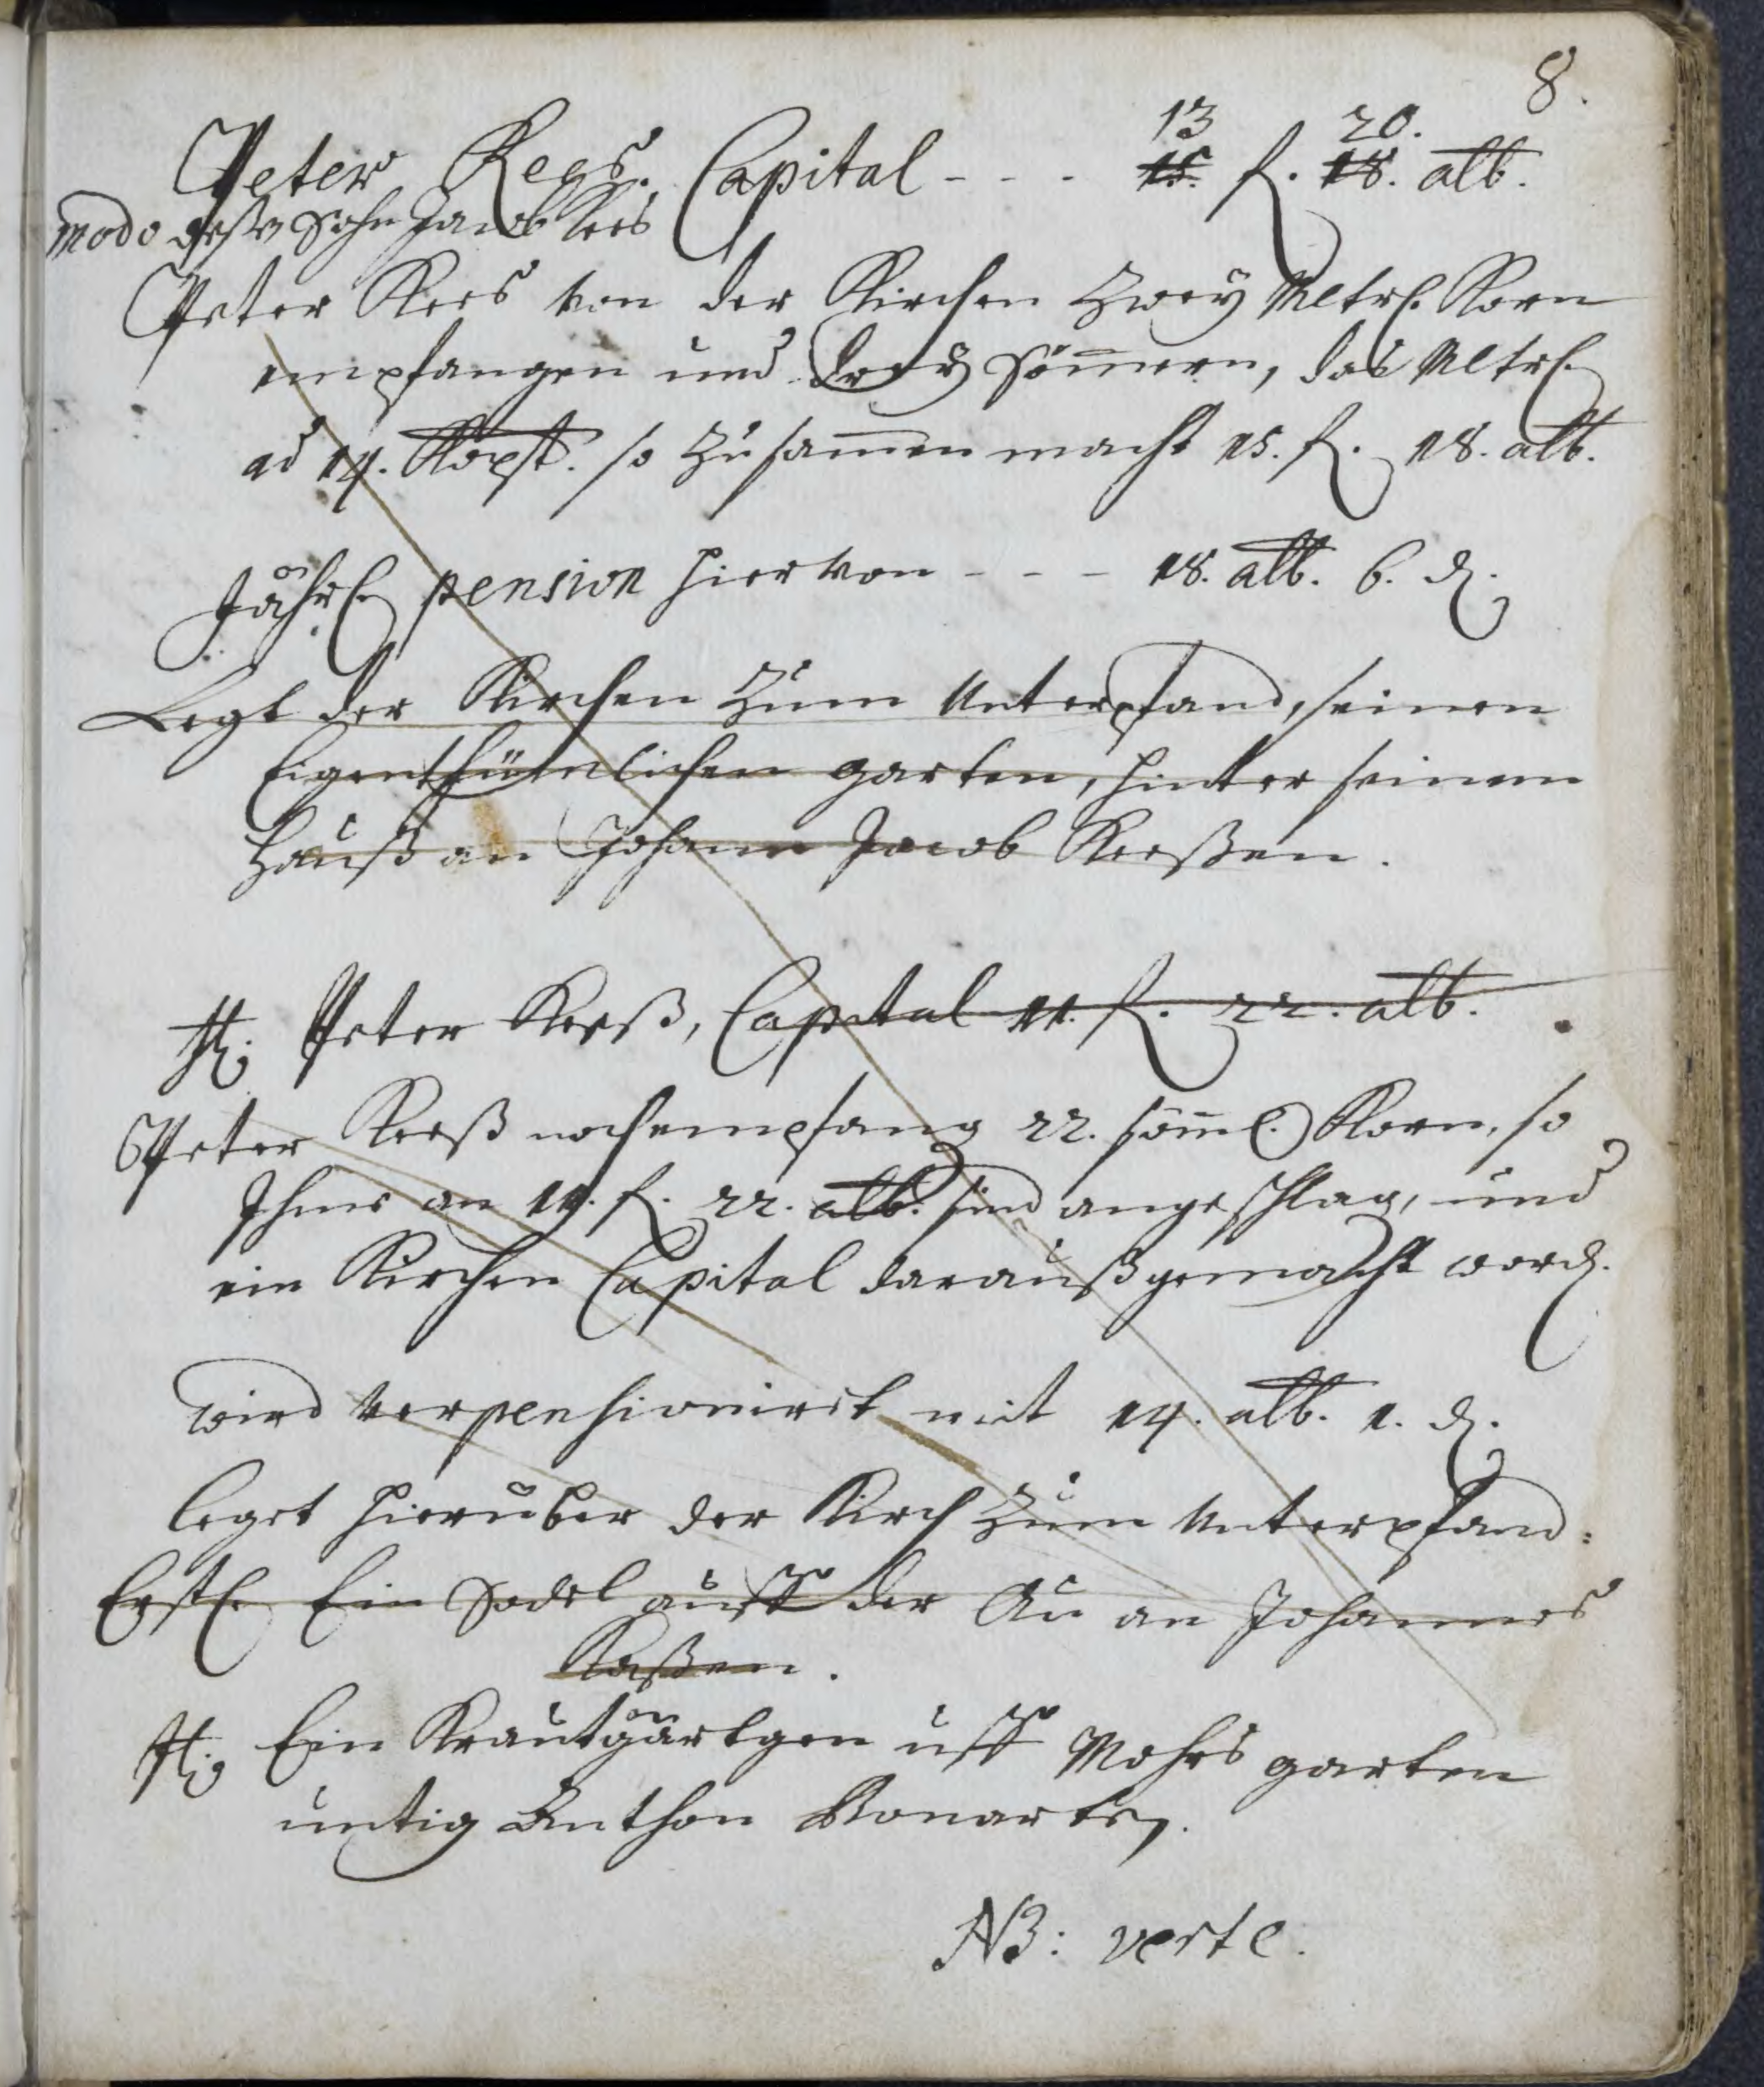 8.
13 20.
Peter Rees. Capital - - - 15. f. 18. alb.
modo deßen Sohn Jacob Rees
Peter Rees von der Kirchen Zwey Mltr. Korn
empfangen und drey Sömern, das Mltr.
ad 14. Kopst. so Zusamen macht 15. f. 18. alb.
Jährl. pension hiervon - - - 18. alb. 6. d.
Legt der Kirchen Zum Unterpfand, seinen
Eigenthümlichen garten, hinter seinem
Hauß an Johann Jacob Reeßen.
It. Peter Reeß, Capital 11. f. 22. alb.
Peter Reeß noch empfang 22. Söm. Korn, so
Ihme an 11. f. 22. alb. sind angeschlag, und
ein Kirchen Capital darauß gemacht word.
wird verpensionirt mit 14. alb. 1. d.
leget hierüber der Kirch Zum Unterpfand:
Erstl. Ein auff der Au an Johannes
Kaßen.
It. Ein Krautgärtgen uff Mohrs garten
untig Anthon
NB: verte.